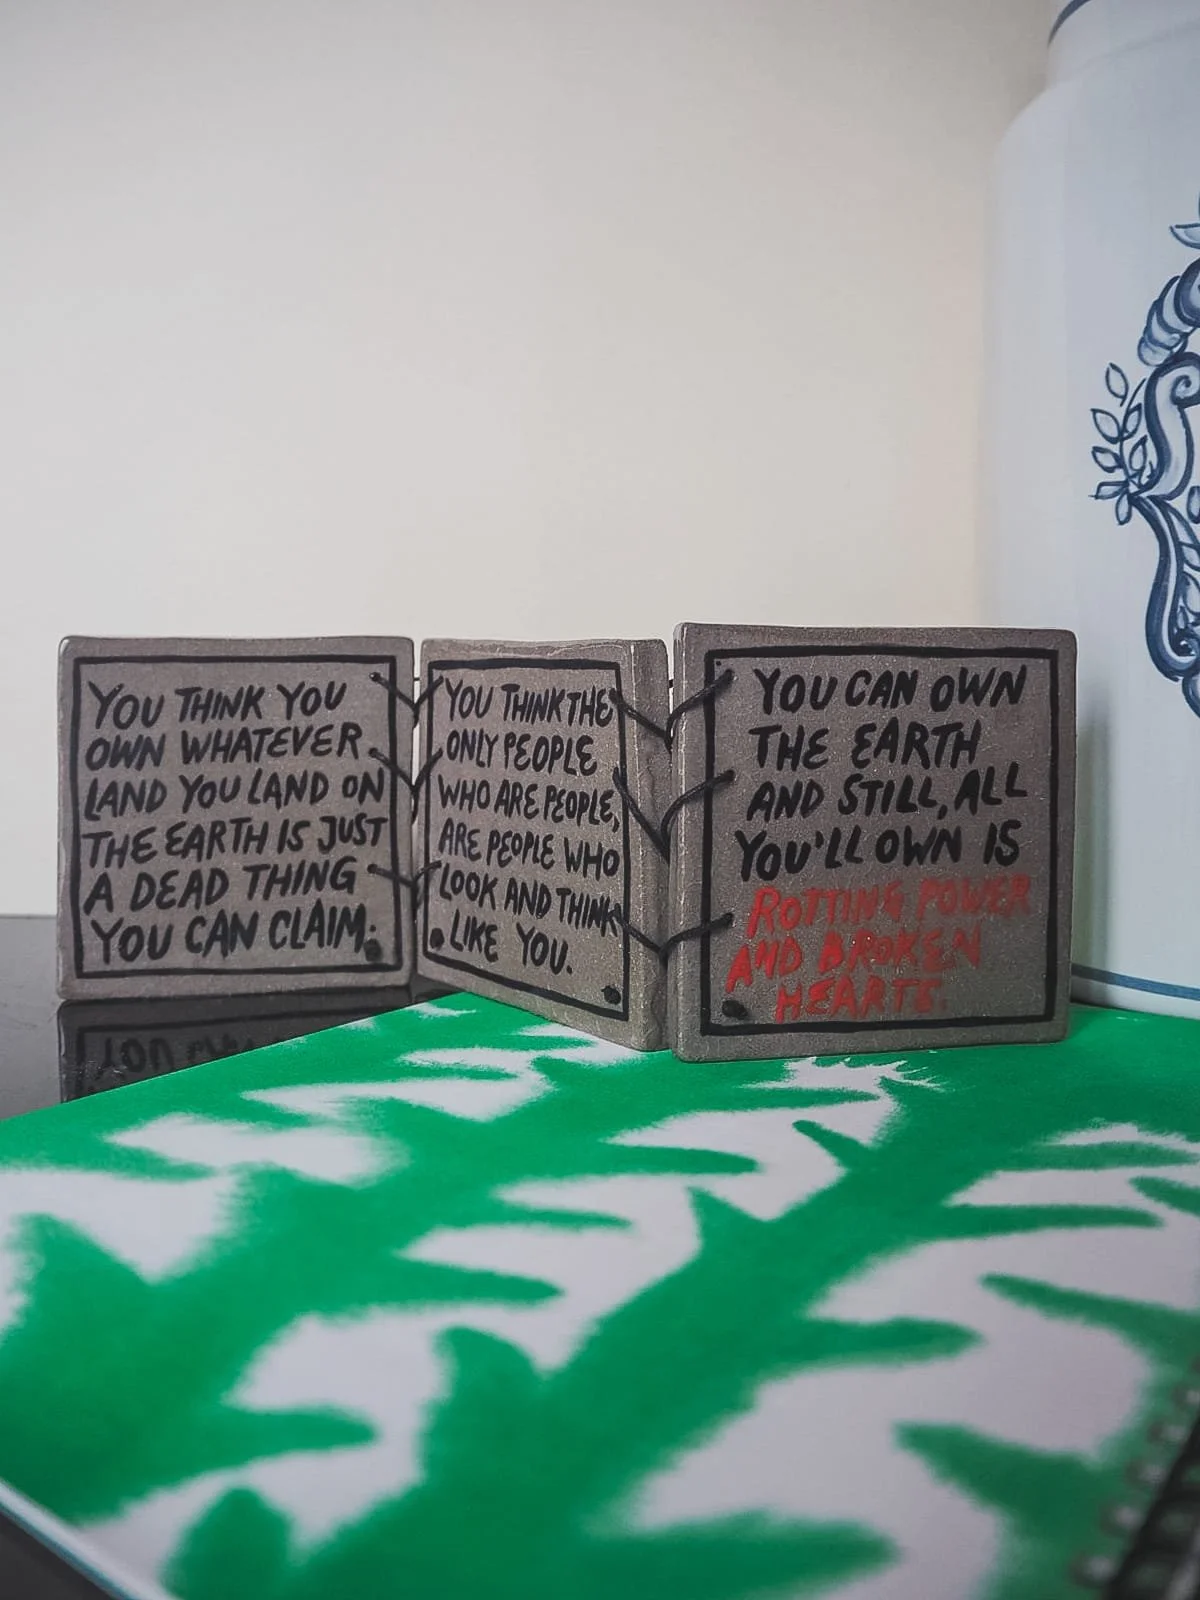 YOU THINK YOU
OWN WHATEVER
LAND YOU LAND ON
THE EARTH IS JUST
A DEAD THING
YOU CAN CLAIM.
YOU THINK THE
ONLY PEOPLE
WHO ARE PEOPLE,
ARE PEOPLE WHO
LOOK AND THINK
LIKE YOU.
YOU CAN OWN
THE EARTH
AND STILL, ALL
YOU'LL OWN IS
ROTTING POWER
AND BROKEN
HEARTS.